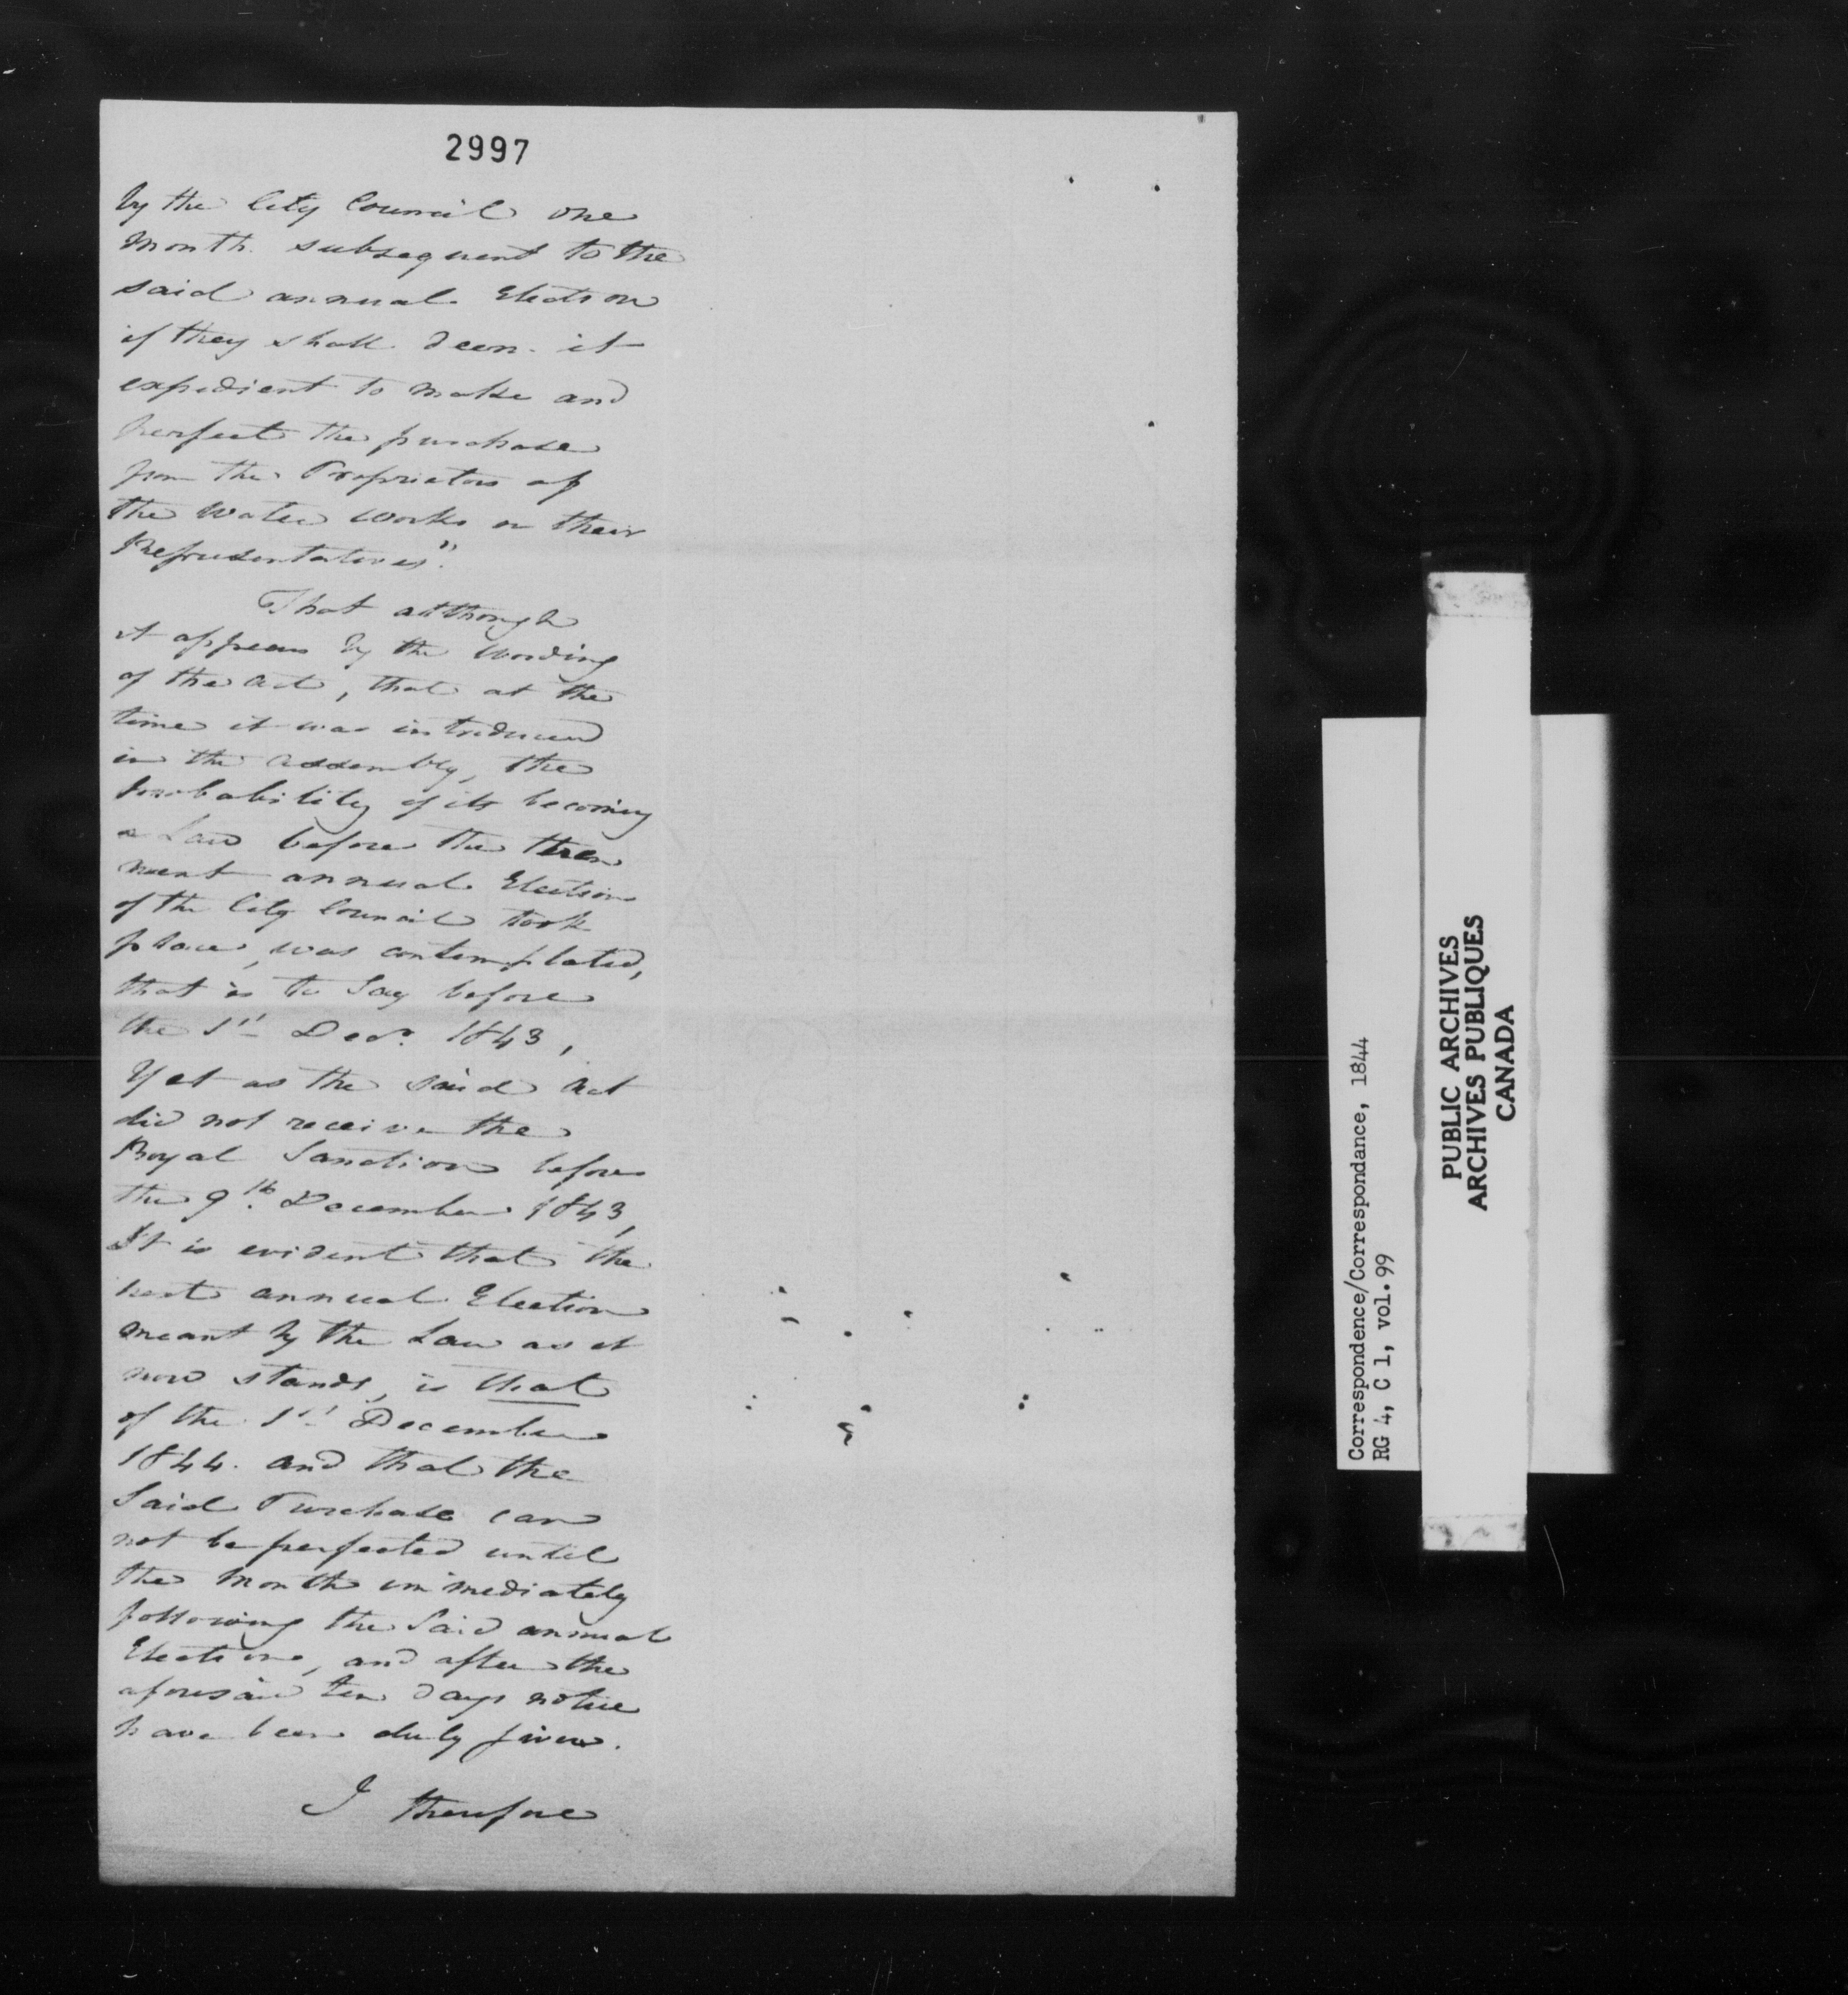 2997
by the City Council one
month subsequent to the
said annual Election
if they shall deem it
expedient to make and
perfect the purchase
from the Proprietors of
the Water Works or their
Representatives".
That although
it appears by the wording
of the act, that at the
time it was introduced
in the assembly, the
probability of its becoming
a Law before the then
next annual Election
of the City Council took
place, was contemplated,
that is to Say before
the 1st Decr. 1843,
Yet as the said Act
did not receive the
Royal Sanction before
the 9th. December 1843,
It is evident that the
next annual Election
meant by the Law as it
now stands, is that
of the 1st December
1844. and that the
Said Purchase can
not be perfected until
the Month immediately
following the Said annual
Election, and after the
aforesaid ten days notice
have been duly given.
I therefore
Correspondence/Correspondance, 1844
RG 4, C 1, vol. 99
PUBLIC ARCHIVES
ARCHIVES PUBLIQUES
CANADA